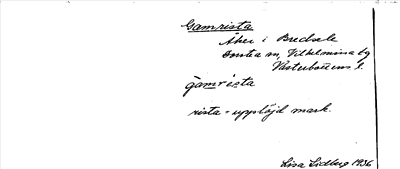 Gamrista
Åker i Bredsele
Vilhelmina by
Västerbottens l.
gamrista
rista - upplöjd mark.
Lisa Lidberg 1936